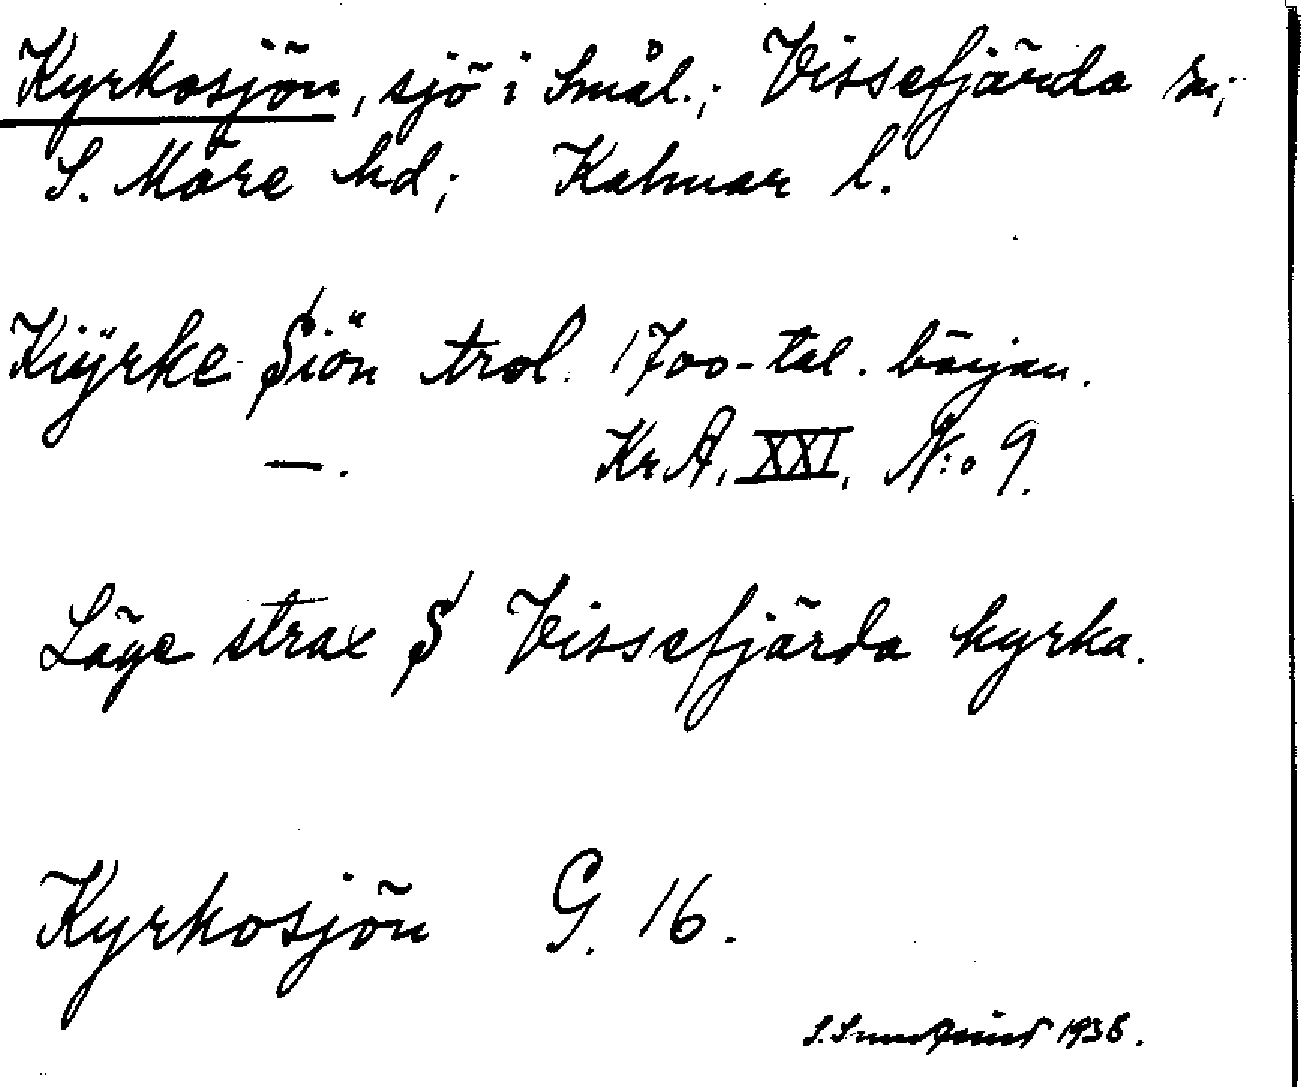 Kyrkosjön, sjö i Smål.; Vissefjärda sn;
S. Möre hd; Kalmar l.
Kiÿrke Siön trol. 1700-tal. början.
—. KrA, XXI, N:o 9.
Läge strax S Vissefjärda kyrka.
Kyrkosjön G. 16.
1938.